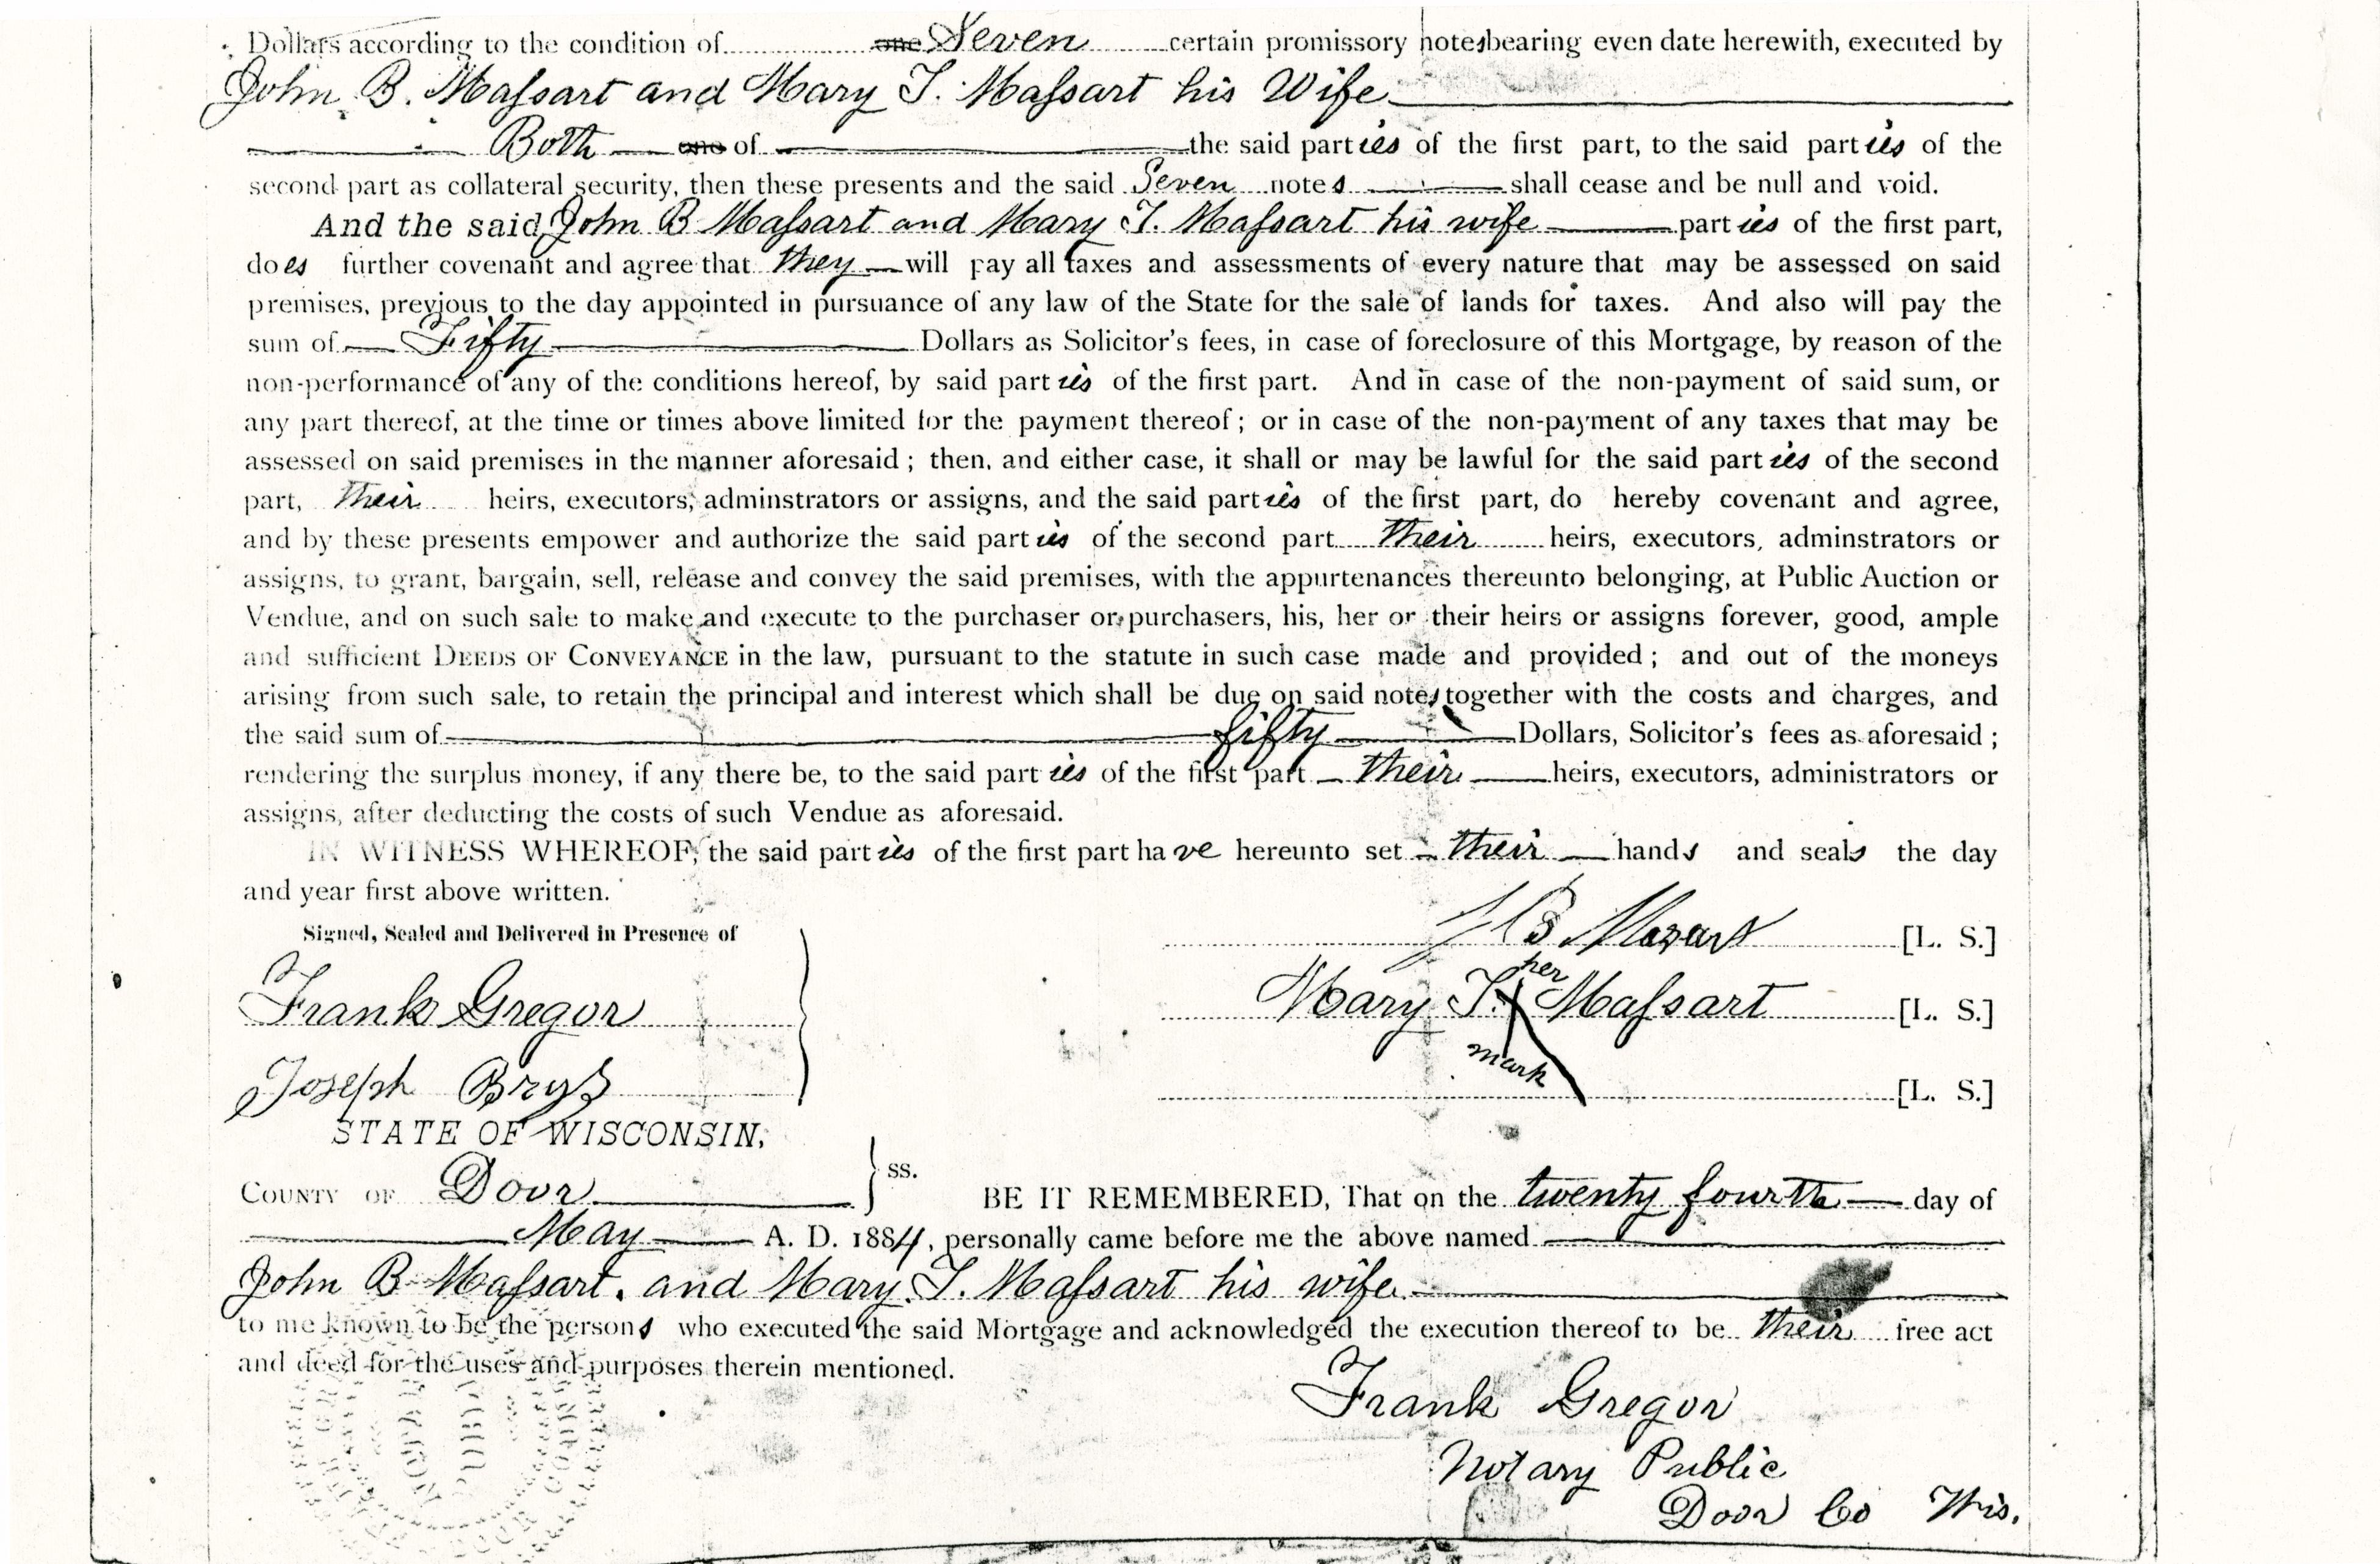 Dollars according to the condition of one Seven certain promissory notes bearing even date herewith, executed by
John B. Maſsart and Mary T. Maſsart his Wife
Both one of the said parties of the first part, to the said parties of the
second part as collateral security, then these presents and the said Seven notes shall cease and be null and void.
And the said John B Maſsart and Mary T. Maſsart his wife parties of the first part,
does further covenant and agree that they will pay all taxes and assessments of every nature that may be assessed on said
premises, previous to the day appointed in pursuance of any law of the State for the sale of lands for taxes. And also will pay the
sum of Fifty Dollars as Solicitor's fees, in case of foreclosure of this Mortgage, by reason of the
non-performance of any of the conditions hereof, by said parties of the first part. And in case of the non-payment of said sum, or
any part thereof, at the time or times above limited for the payment thereof; or in case of the non-payment of any taxes that may be
assessed on said premises in the manner aforesaid; then, and either case, it shall or may be lawful for the said parties of the second
part, their heirs, executors, adminstrators or assigns, and the said parties of the first part, do hereby covenant and agree,
and by these presents empower and authorize the said parties of the second part their heirs, executors, adminstrators or
assigns, to grant, bargain, sell, release and convey the said premises, with the appurtenances thereunto belonging, at Public Auction or
Vendue, and on such sale to make and execute to the purchaser or purchasers, his, her or their heirs or assigns forever, good, ample
and sufficient DEEDS OF CONVEYANCE in the law, pursuant to the statute in such case made and provided; and out of the moneys
arising from such sale, to retain the principal and interest which shall be due on said notes together with the costs and charges, and
the said sum of fifty Dollars, Solicitor's fees as aforesaid;
rendering the surplus money, if any there be, to the said parties of the first part their heirs, executors, administrators or
assigns, after deducting the costs of such Vendue as aforesaid.
IN WITNESS WHEREOF, the said parties of the first part have hereunto set their hands and seals the day
and year first above written.
Signed, Sealed and Delivered in Presence of
J B Mozart [L. S.]
Frank Gregor
Mary T. her Maſsart [L. S.]
mark
Joseph Brys
[L. S.]
STATE OF WISCONSIN,
ss.
COUNTY OF Door BE IT REMEMBERED, That on the twenty fourth day of
May A. D. 1884, personally came before me the above named
John B Maſsart. and Mary T. Maſsart his wife
to me known to be the persons who executed the said Mortgage and acknowledged the execution thereof to be their free act
and deed for the uses and purposes therein mentioned.
Frank Gregor
Notary Public
Door Co Wis.